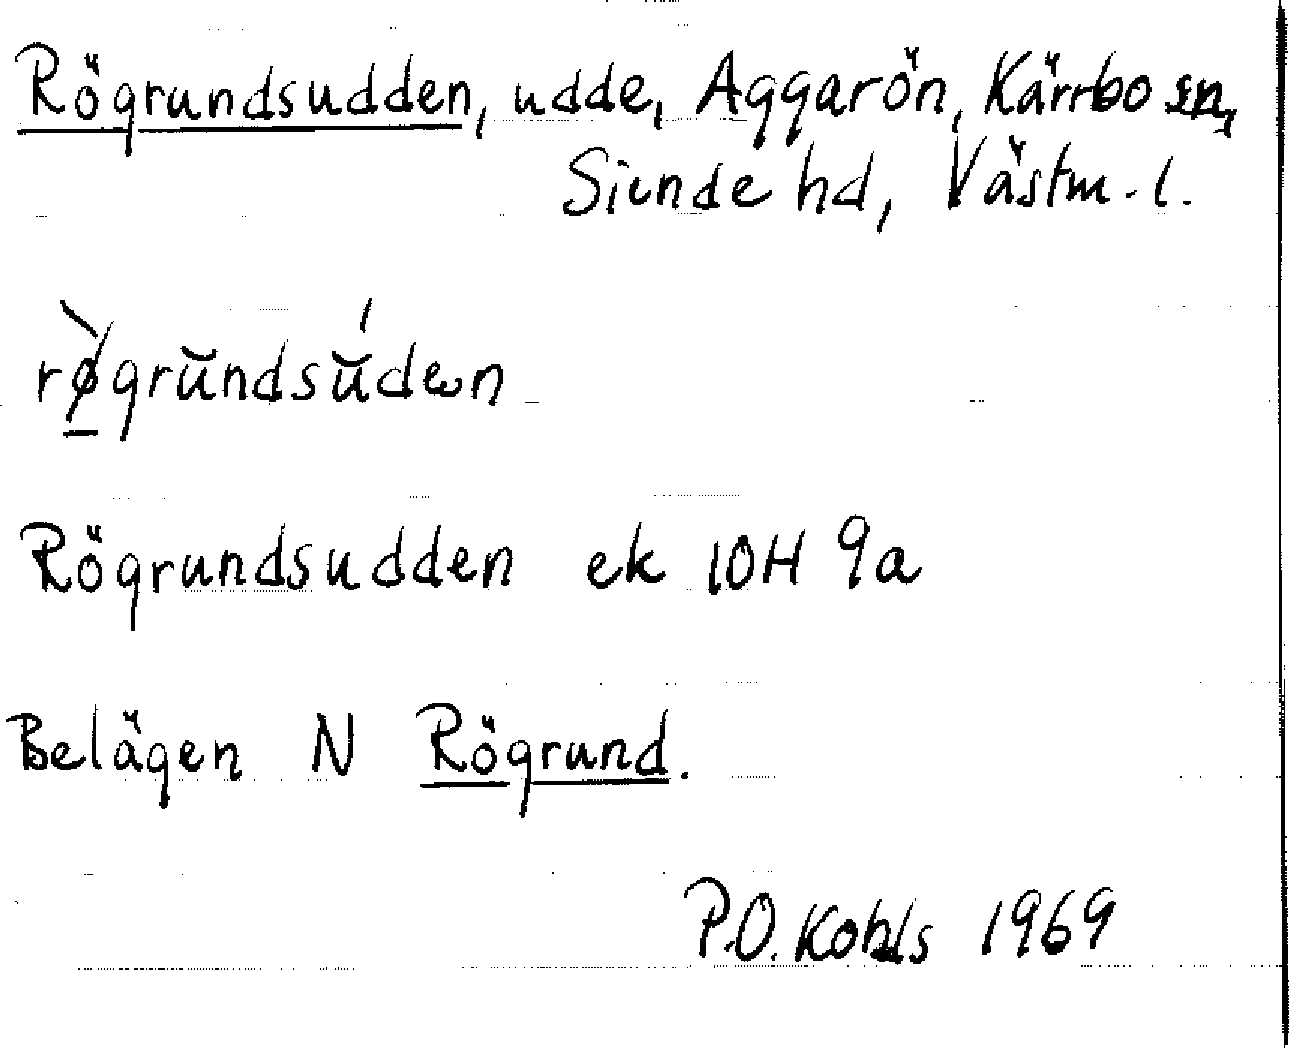 Rögrundsudden, udde, Aggarön, Kärrbo sn,
Siende hd, Västm. l.
rø̀grŭndsŭ́den
Rögrundsudden ek 10H 9a
Belägen N Rögrund.
P.O. Kohls 1969